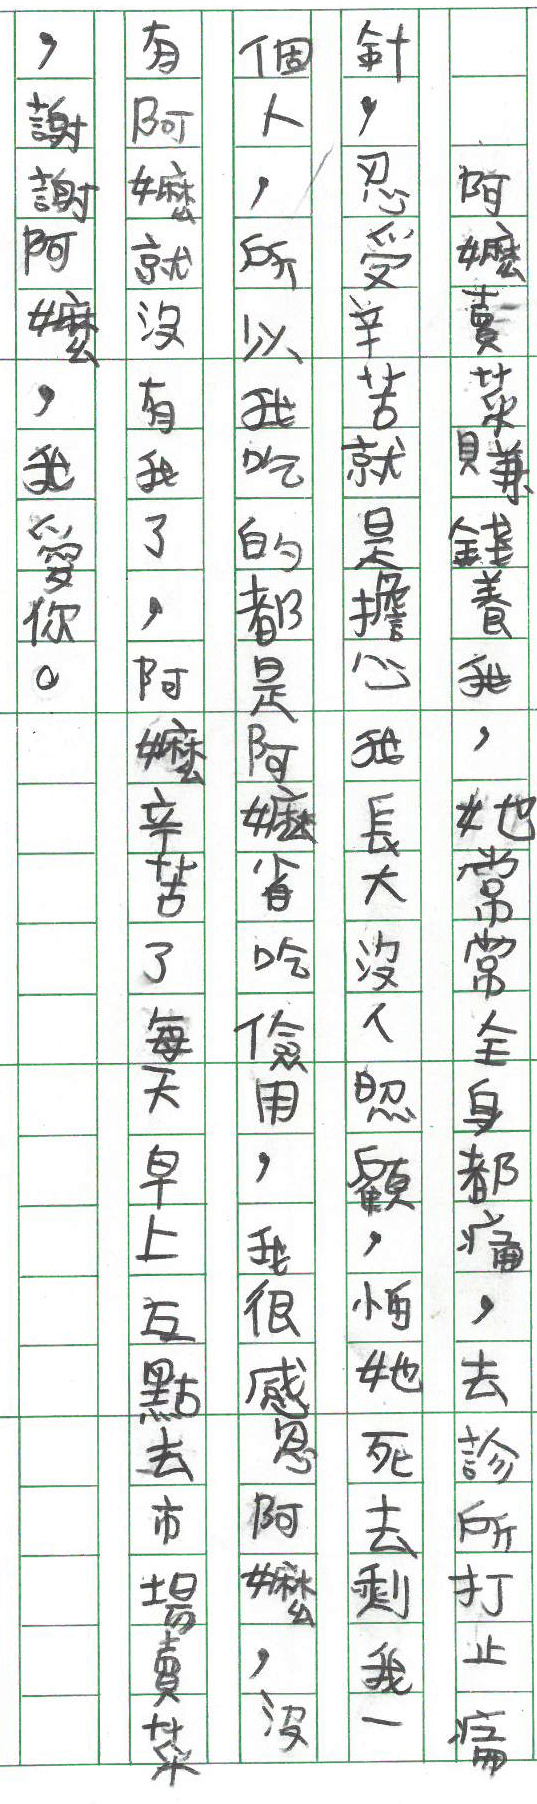 阿嬤賣菜賺錢養我，她常常全身都痛，去診所打止痛
針，忍受辛苦就是擔心我長大沒人照顧，怕她死去剩我一
個人，所以我吃的都是阿嬤省吃儉用，我很感恩阿嬤，沒
有阿嬤就沒有我了，阿嬤辛苦了每天早上五點去市場賣菜
，謝謝阿嬤，我愛你。